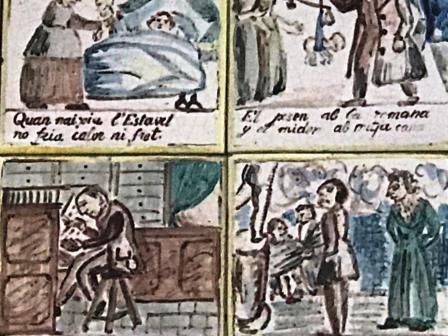 Quan naixia l'Estavet
no feia calor ni fret.
El pesen ab la romana
y el miden ab mitja cana